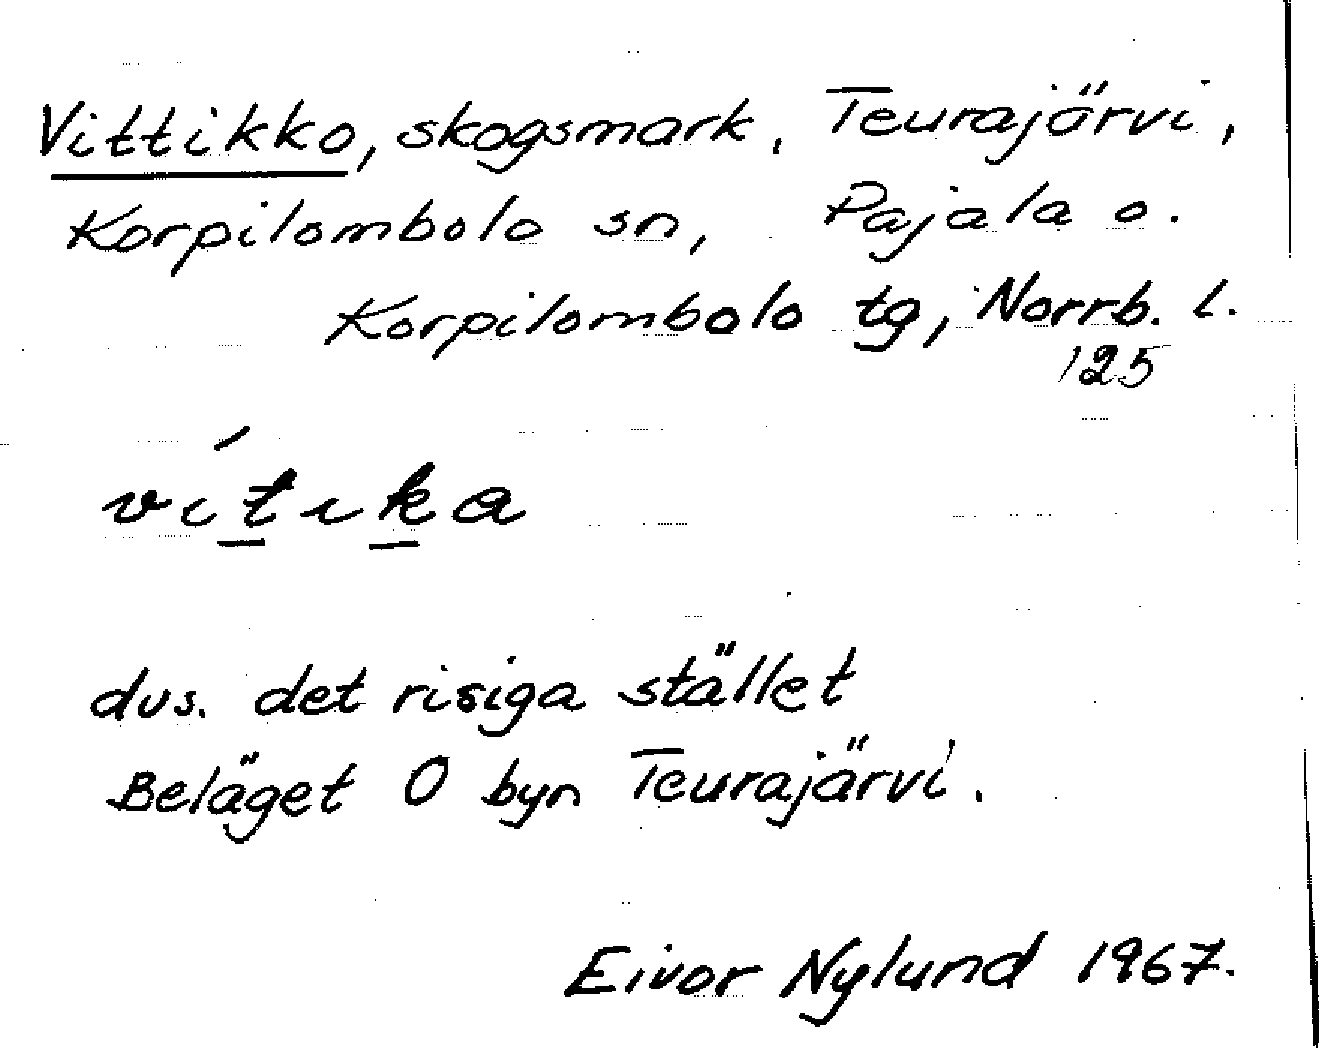 Vittikko, skogsmark, Teurajärvi,
Korpilombolo sn, Pajala o.
Korpilombolo tg, Norrb. l.
125
vítιka
dvs. det risiga stället
Beläget O byn Teurajärvi.
Eivor Nylund 1967.